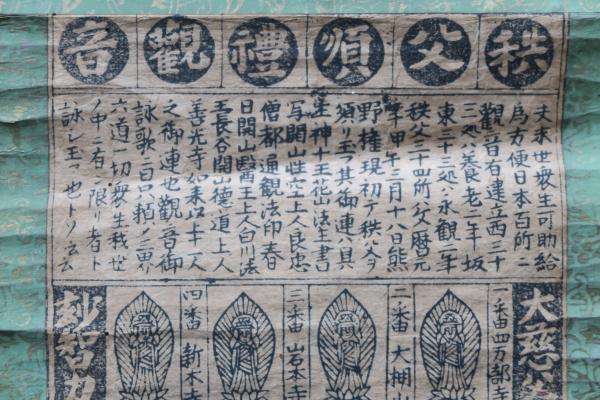 秩父順禮觀音
夫末世衆生可助給
為方便日本百所ニ
觀音右建立西三十
三処ハ養老二年坂
東三十三処ハ永觀二年
秩父三十四所ハ文暦元
年甲午三月十八日熊
野権現初テ秩父ヲ
須リ玉フ其御連ハ具
生神十王花山法王書
写開山性空上人良忠
僧都通觀法印春
日開山醫王上人白川法
王長谷開山徳道上人
善光寺如来以十一人
之御連也觀音御
詠歌ニ曰只頼メ
六道一切衆生我世
ノ中ニ有ン限リ者ト
詠レ玉フ也トソ云云
大慈
一番四万部寺
二番大棚山
三番岩本寺
四番新木寺
妙智力